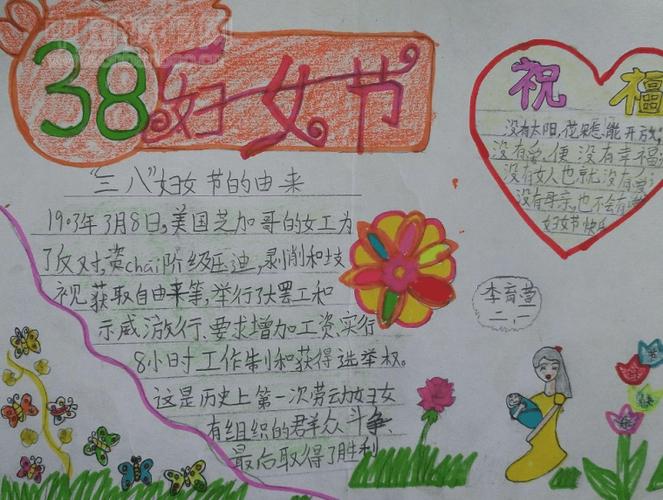 38妇女节
祝福
没有太阳,花朵怎能开放,
没有爱便没有幸福
没有女人也就没有爱,
没有母亲,也不会有
妇女节快乐
"三八"妇女节的由来
1903年3月8日,美国芝加哥的女工为
了反对,资chǎi阶级压迪,剥削和歧
视获取自由来等,举行了大罢工和
示威游行、要求增加工资、实行
8小日寸工作制和获得选举权。
这是历史上第一次劳动妇女
有组织的群众斗争、
最后取得了胜利
李育萱
二,一